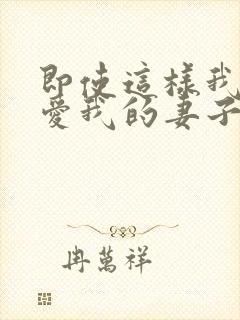 即使這樣我
愛我的妻子
冉萬祥